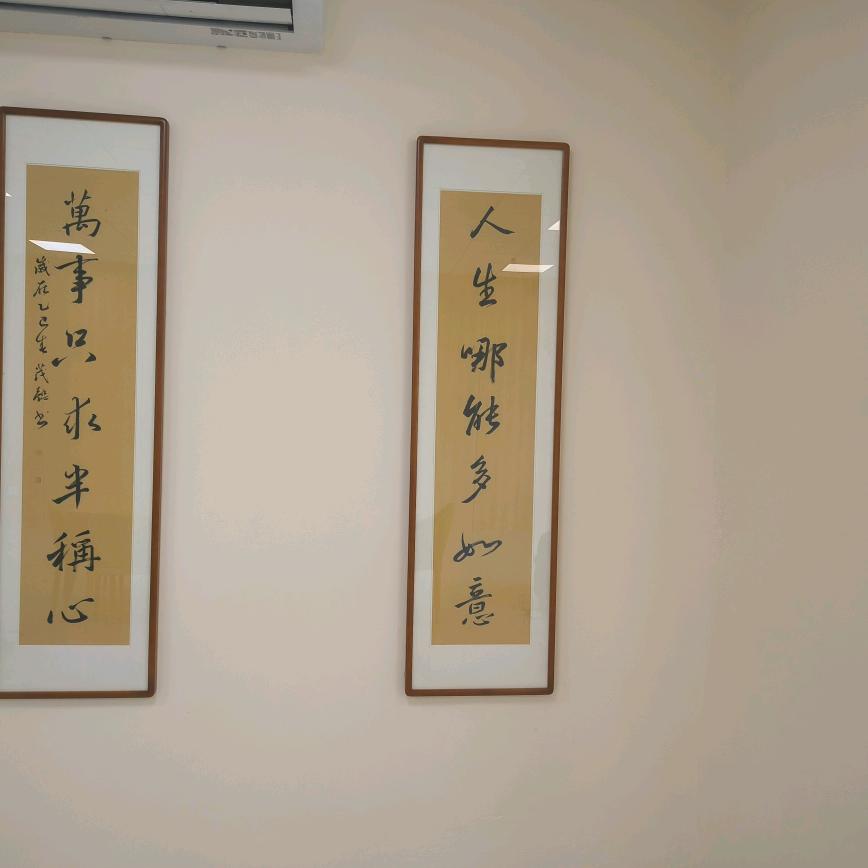 人生哪能多如意
萬事只求半稱心
歲在乙巳春茂
書